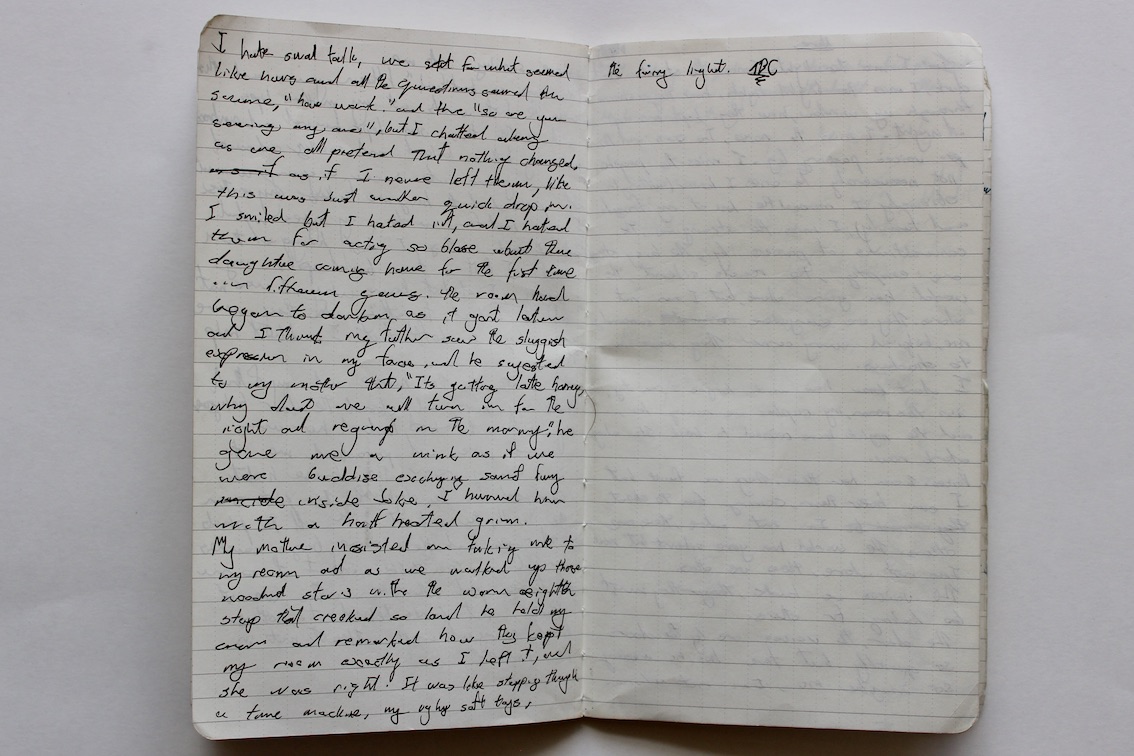 I hate smal talk, we sat for what seemed
like hours and all the questions seemed the
same, "how work." and the "so are you
seeing any one", but I chatted along
as we all pretend that nothing changed,
as if as if I never left them, like
this was just another quick drop in.
I smiled but I hated it, and I hated
them for acting so blase about there
daughter coming home for the first time
in fifteen years. The room had
began to darken as it got later
and I think my father saw the sluggish
expression in my face, and he sugested
to my mother that, "Its getting late honey,
why dont we all turn in for the
night and regroup in the morning", he
gave me a wink as if we
were buddise exchanging some funny
inside inside joke, I
with a half heated grin.
My mother insisted on taking me to
my room and as we walked up those
wooded stairs with the worn eighth
step that creeked so loud he held my
arm and remarked how they kept
my room exactly as I left it, and
she was right! It was like stepping though
a time machine, my soft toys,
the fairy light. TBC